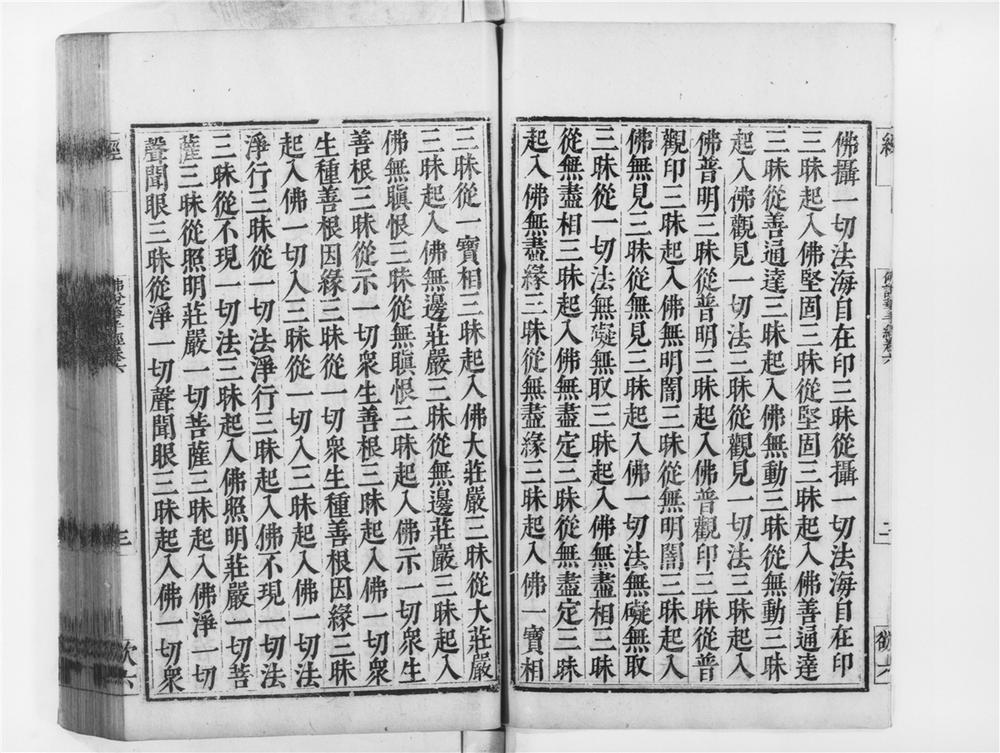 佛攝一切法海自在印三昧從攝一切法海自在印
三昧起入佛堅固三昧從堅固三昧起入佛善通達
三昧從善通達三昧起入佛無動三昧從無動三昧
起入佛觀見一切法三昧從觀見一切法三昧起入
佛普明三昧從普明三昧起入佛普觀印三昧從普
觀印三昧起入佛無明闇三昧從無明闇三昧起入
佛無見三昧從無見三昧起入佛一切法無礙無取
三昧從一切法無礙無取三昧起入佛無盡相三昧
從無盡相三昧起入佛無盡定三昧從無盡定三昧
起入佛無盡緣三昧從無盡緣三昧起入佛一寶相
三昧從一寶相三昧起入佛大莊嚴三昧從大莊嚴
三昧起入佛無邊莊嚴三昧從無邊莊嚴三昧起入
佛無瞋恨三昧從無瞋恨三昧起入佛示一切衆生
善根三昧從示一切衆生善根三昧起入佛一切衆
生種善根因緣三昧從一切衆生種善根因緣三昧
起入佛一切入三昧從一切入三昧起入佛一切法
淨行三昧從一切法淨行三昧起入佛不現一切法
三昧從不現一切法三昧起入佛照明莊嚴一切菩
薩三昧從照明莊嚴一切菩薩三昧起入佛淨一切
聲聞眼三昧從淨一切聲聞眼三昧起入佛一切衆
經
佛說華手經卷六
三
欠六